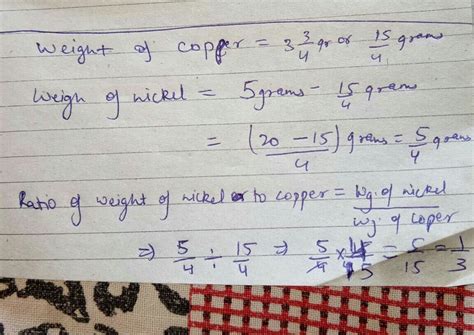 Weight of copper = 3 3/4 gr or 15/4 grams
Weigh of nickel = 5grams - 15/4 grams
= (20 - 15)/4 grams = 5/4 grams
Ratio of weight of nickel to copper = Wg. of nickel / Wg. of coper
⇒ 5/4 ÷ 15/4 ⇒ 5/4 × 4/15 = 5/15 = 1/3